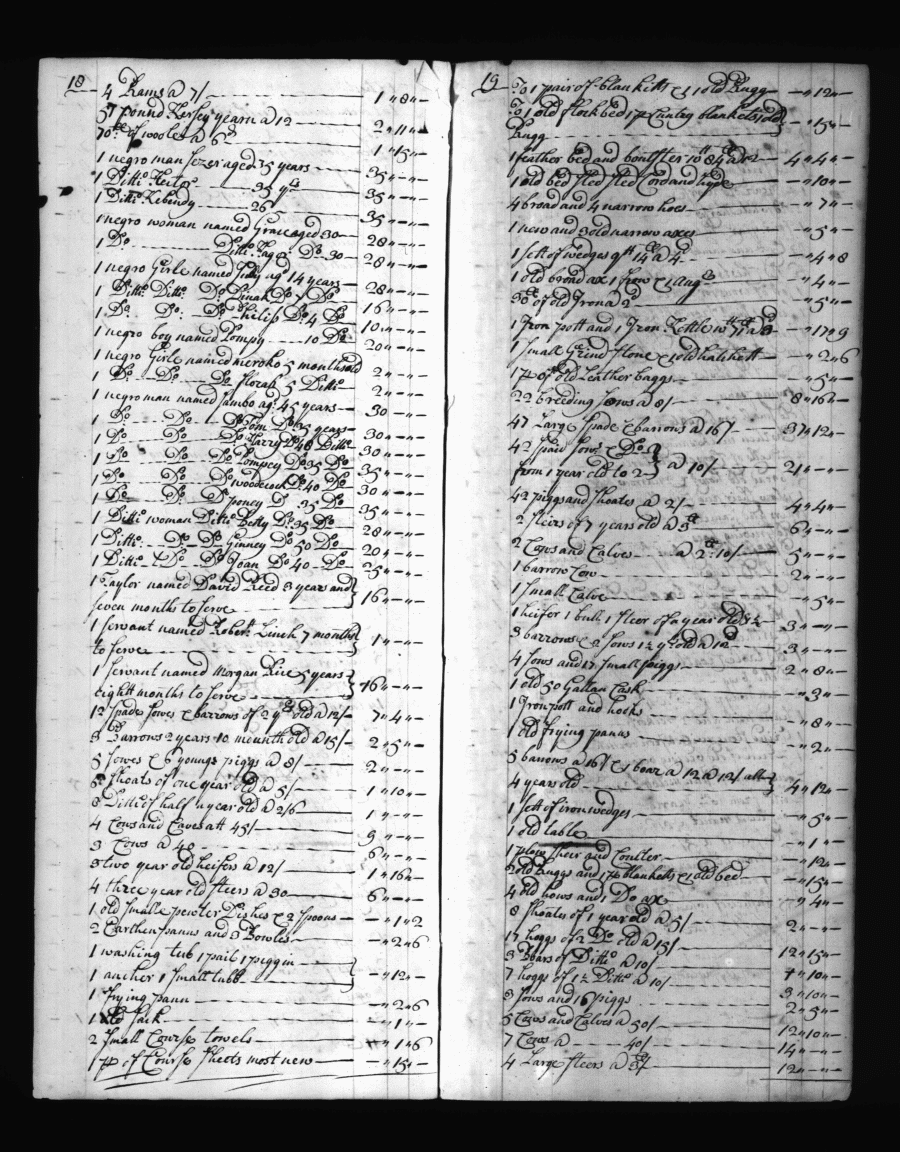 18
4 Rams a 7/ 1 " 8 " -
57 pound Kersey yearn a 12 2 " 11 " -
70 lb of wooles a 6 d 1 " 15 " -
1 negro man aged 35 years 35 " - " -
1 Ditto Hector 35 yrs 35 " - " -
1 Ditto 26 35 " - " -
1 negro woman named Grace aged 30 28 " - " -
1 Do Ditto Do 30 28 " - " -
1 negro Girle named Judy agd 14 years 28 " - " -
1 Ditto Ditto Do Dinah Do 7 Do 16 " - " -
1 Do Do Do Phelis Do 4 Do 10 " - " -
1 negro boy named Pompy 10 Do 20 " - " -
1 negro Girle named 5 months old 2 " - " -
1 Do Do Do florah 5 Ditto 2 " - " -
1 negro man named Sambo ag: 45 years 30 " - " -
1 Do Do Do Tom Do 35 years 30 " - " -
1 Do Do Do Harry Do 40 Ditto 30 " - " -
1 Do Do Do Pompey Do 35 Do 35 " - " -
1 Do Do Do woodcock Do 40 Do 30 " - " -
1 Do Do Do Do 35 Do 35 " - " -
1 Ditto woman Ditto Betty Do 35 Do 28 " - " -
1 Ditto Do Do Ginney Do 50 Do 20 " - " -
1 Ditto Do Do Joan Do 40 Do 25 " - " -
1 Taylor named David Reed 3 year and
seven months to serve 16 " - " -
1 servant named Robert Linch 7 months
to serve 1 " - " -
1 servant named Morgan Rice 5 years
eight months to serve 16 " - " -
12 spade sowes & barrows of 2 yrs old a 12/ 7 " 4 " -
3 Barrows 2 years 10 mounth old a 15/ 2 " 5 " -
5 sowes & 6 youngs piggs a 8/ 2 " - " -
6 shoats of one year old a 5/ 1 " 10 " -
8 Ditto of half a year old a 2/6 1 " - " -
4 Cows and Caves att 45/ 9 " - " -
3 Cows a 40 6 " - " -
3 two year old heifers a 12/ 1 " 16 " -
4 three year old steers a 30 6 " - " -
1 old smalle pewter Dishes & 2 spoons - " 1 " 2
2 Earthen panns and 3 Bowles - " 2 " 6
1 washing tub 1 pail 1 piggin
1 ancher 1 small tubb - " 12 " -
1 frying pann - " 2 " 6
1 old sack - " 1 " -
2 small Course towels - " 1 " 6
1 pr of Course sheets most new - " 15 " -
19
To 1 pair of blanketts & 1 old Rugg - " 12 " -
To 1 old flock bed 1 pr Cuntey blankets 1 old
Rugg - " 15 " -
1 feather bed and boulster 4 " 4 " -
1 old bed sted Cord and hyde - " 10 " -
4 broad and 4 narrow hoes - " 7 " -
1 new and 3 old narrow axes - " 5 " -
1 sett of wedges qtt 14 lb a 4 - " 4 " 8
1 old broad ax 1 frow & 1 augr - " 4 " -
30 lb of old Iron a 2 d - " 5 " -
1 Iron pott and 1 Iron Kettle - " 17 " 9
1 small Grind stone & 1 old hatchett - " 2 " 6
1 pr of old Leather baggs - " 5 " -
22 breeding sows a 8/ 8 " 16 " -
47 Large spade & barrows a 16/ 37 " 12 " -
42 spaid sows & Do
from 1 year old to 2 a 10/ 21 " - " -
42 piggs and shoates a 2/ 4 " 4 " -
2 steirs of 7 years old a 3 6 " - " -
2 Cows and Calves a 2 " 10/ 5 " - " -
1 barrow Cow 2 " - " -
1 small Calve - " 5 " -
1 heifer 1 bull 1 steer of a year old & ½ 3 " - " -
3 barrows & 2 sows 1½ yr old a 12 3 " - " -
4 sows and 17 small piggs 2 " 8 " -
1 old 50 Gallan Cask - " 3 " -
1 Iron pott and hooks - " 8 " -
1 old frying panns - " 2 " -
5 barrows a 16/ & 1 boar a 12 a 12/ all
4 years old 4 " 12 " -
1 sett of iron wedges - " 5 " -
1 old table - " 1 " -
1 plow sheir and Coulter - " 12 " -
2 old Ruggs and 1 pr blanketts & 1 old bed - " 15 " -
4 old hows and 1 Do ax - " 4 " -
8 shoates of 1 year old a 5/ 2 " - " -
17 hoggs of 2 Do old a 15/ 12 " 15 " -
3 Boars of Ditto a 10/ 4 " 10 " -
7 hoggs of 1½ Ditto a 10/ 3 " 10 " -
3 sows and 16 piggs 2 " 5 " -
5 Cows and Calves a 50/ 12 " 10 " -
7 Cows a 40/ 14 " - " -
4 Large steers a 12 " - " -